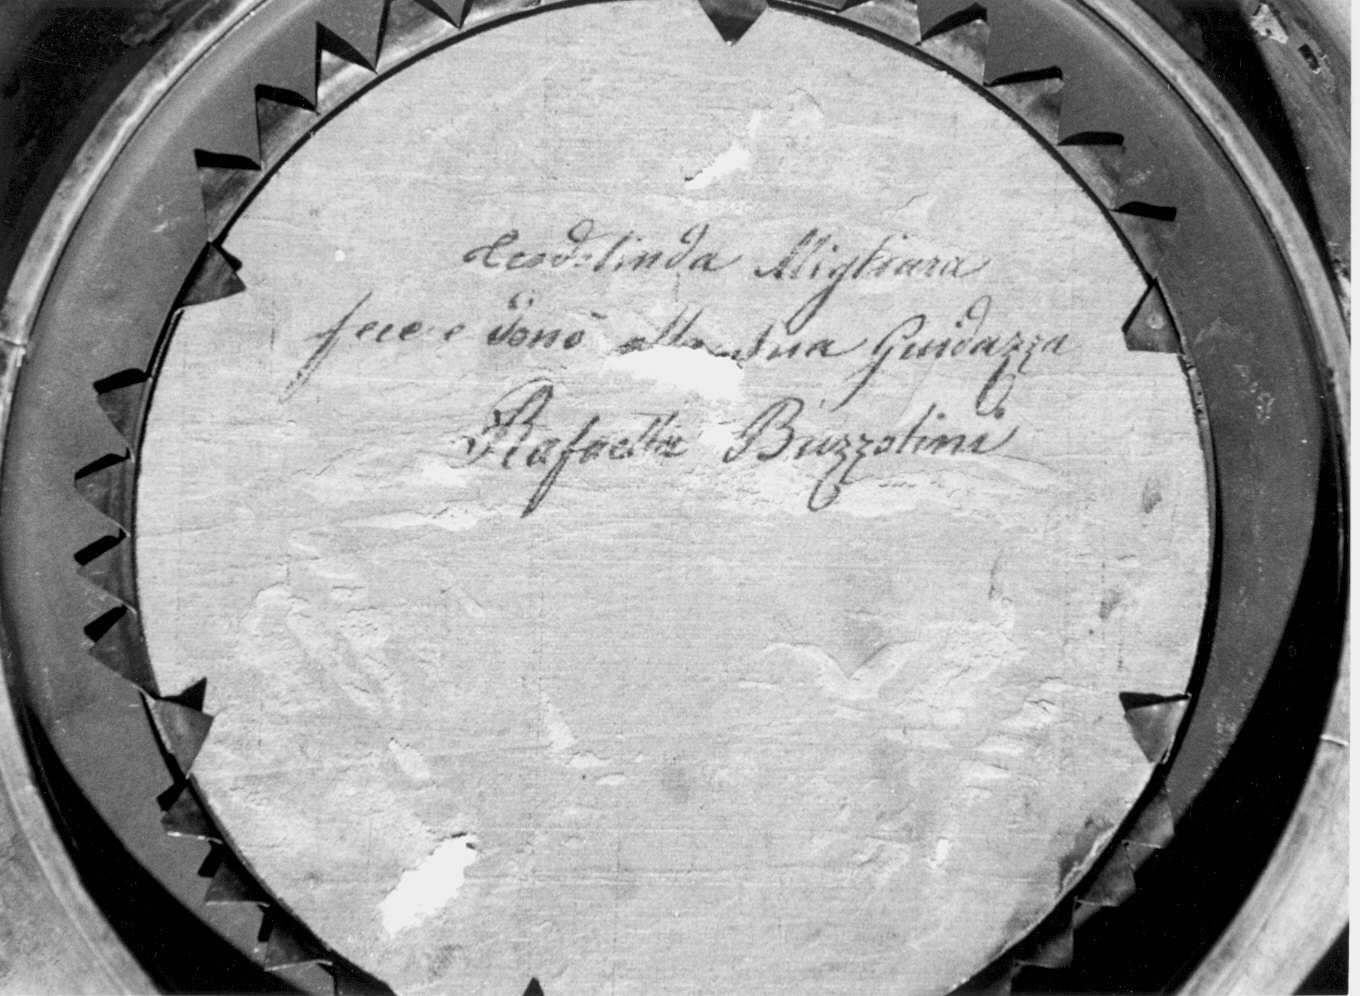 Teodolinda Migliara
fece e donò alla sua Guidazza
Rafaella Buzzolini